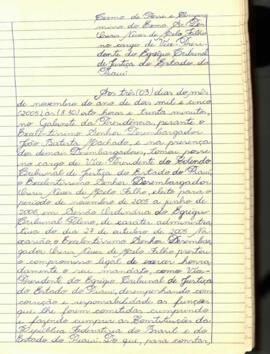 Termo de Posse e Com-
misso do Exmo. Sr. Des.
Nívea de Melo Filho
no cargo de Vice-Presi-
dente do Egrégio Tribunal
de Justiça do Estado do
Piauí
Aos três (03) dias do mês
de novembro do ano de dois mil e cinco
(2005) às (8:30) oito horas e trinta minutos,
no Gabinete da Presidência, perante o
Excelentíssimo Senhor Desembargador
João Batista Machado, e na presença
dos demais Desembargadores, tomou posse
no cargo de Vice Presidente do Colendo
Tribunal de Justiça do Estado do Piauí,
o Excelentíssimo Senhor Desembargador
de Melo Filho, eleito para o
período de novembro de 2005 a junho
de 2006, em Sessão Ordinária do Egrégio
Tribunal Pleno, de caráter administra-
tivo do dia 27 de outubro de 2005. Na
ocasião o Excelentíssimo Senhor Desembar-
gador de Melo Filho prestou
o compromisso legal de exercer honra-
damente o seu mandato, como Vice-
Presidente do Egrégio Tribunal de Justiça
do Estado do Piauí, desempenhando com
correção e responsabilidade as funções
que lhe forem cometidas, cumprindo
e fazendo cumprir a Constituição da
República Federativa do Brasil e do
Estado do Piauí. Do que, para constar,